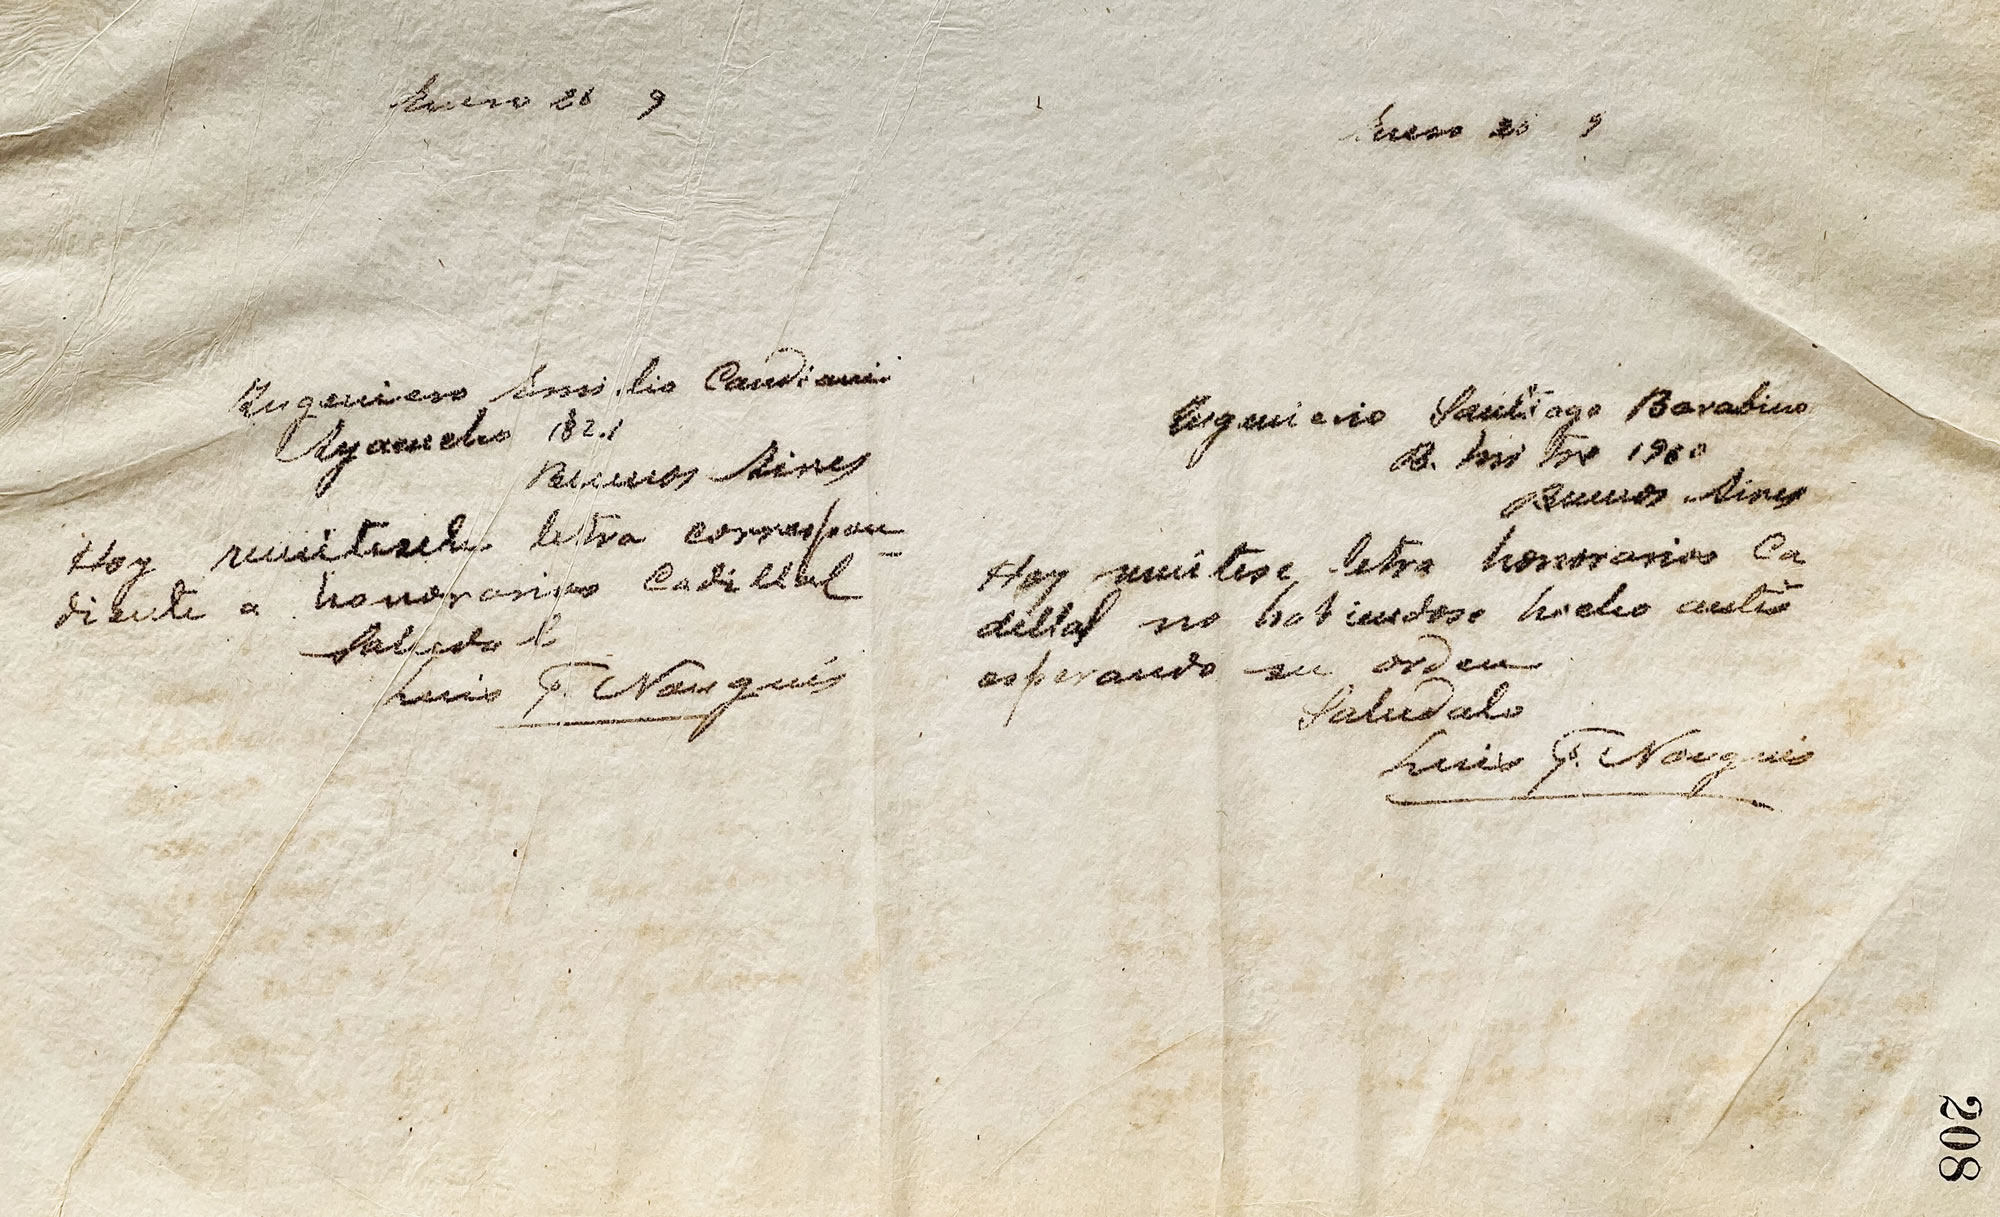 Enero 26 9
Ingeniero Emilio Candiani
Ayacucho 1821
Buenos Aires
Hoy remitesele letra correspon
diente a honorarios Cadillal
Saludo
Luis F. Nougués
Enero 26 9
Ingeniero Santiago Barabino
B. Mitre 1960
Buenos Aires
Hoy remitese letra honorarios Ca
dillal no habiendose hecho antes
esperando su orden
Saludalo
Luis F. Nougués
208